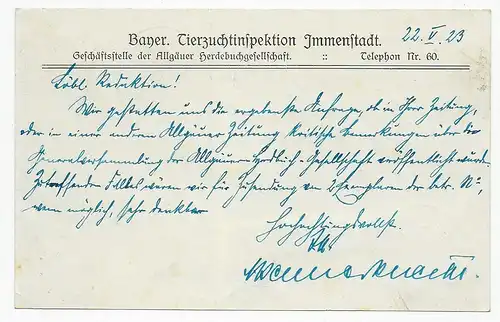 Bayer. Tierzuchtinspektion Immenstadt.
22. V. 23
Geschäftsstelle der Allgäuer Herdebuchgesellschaft. :: Telephon Nr. 60.
Löbl. Redaktion!
Wir gestatten uns die ergebenste Anfrage, ob in Ihrer Zeitung,
oder in einer anderen Allgäuer Zeitung kritische Bemerkungen über die
Generalversammlung der Allgäuer Gesellschaft veröffentlicht wurden
Zutreffenden Falles wären wir für Zusendung von 2 Exemplaren der betr. Nr.,
wenn möglich, sehr dankbar
Hochachtungsvollst.